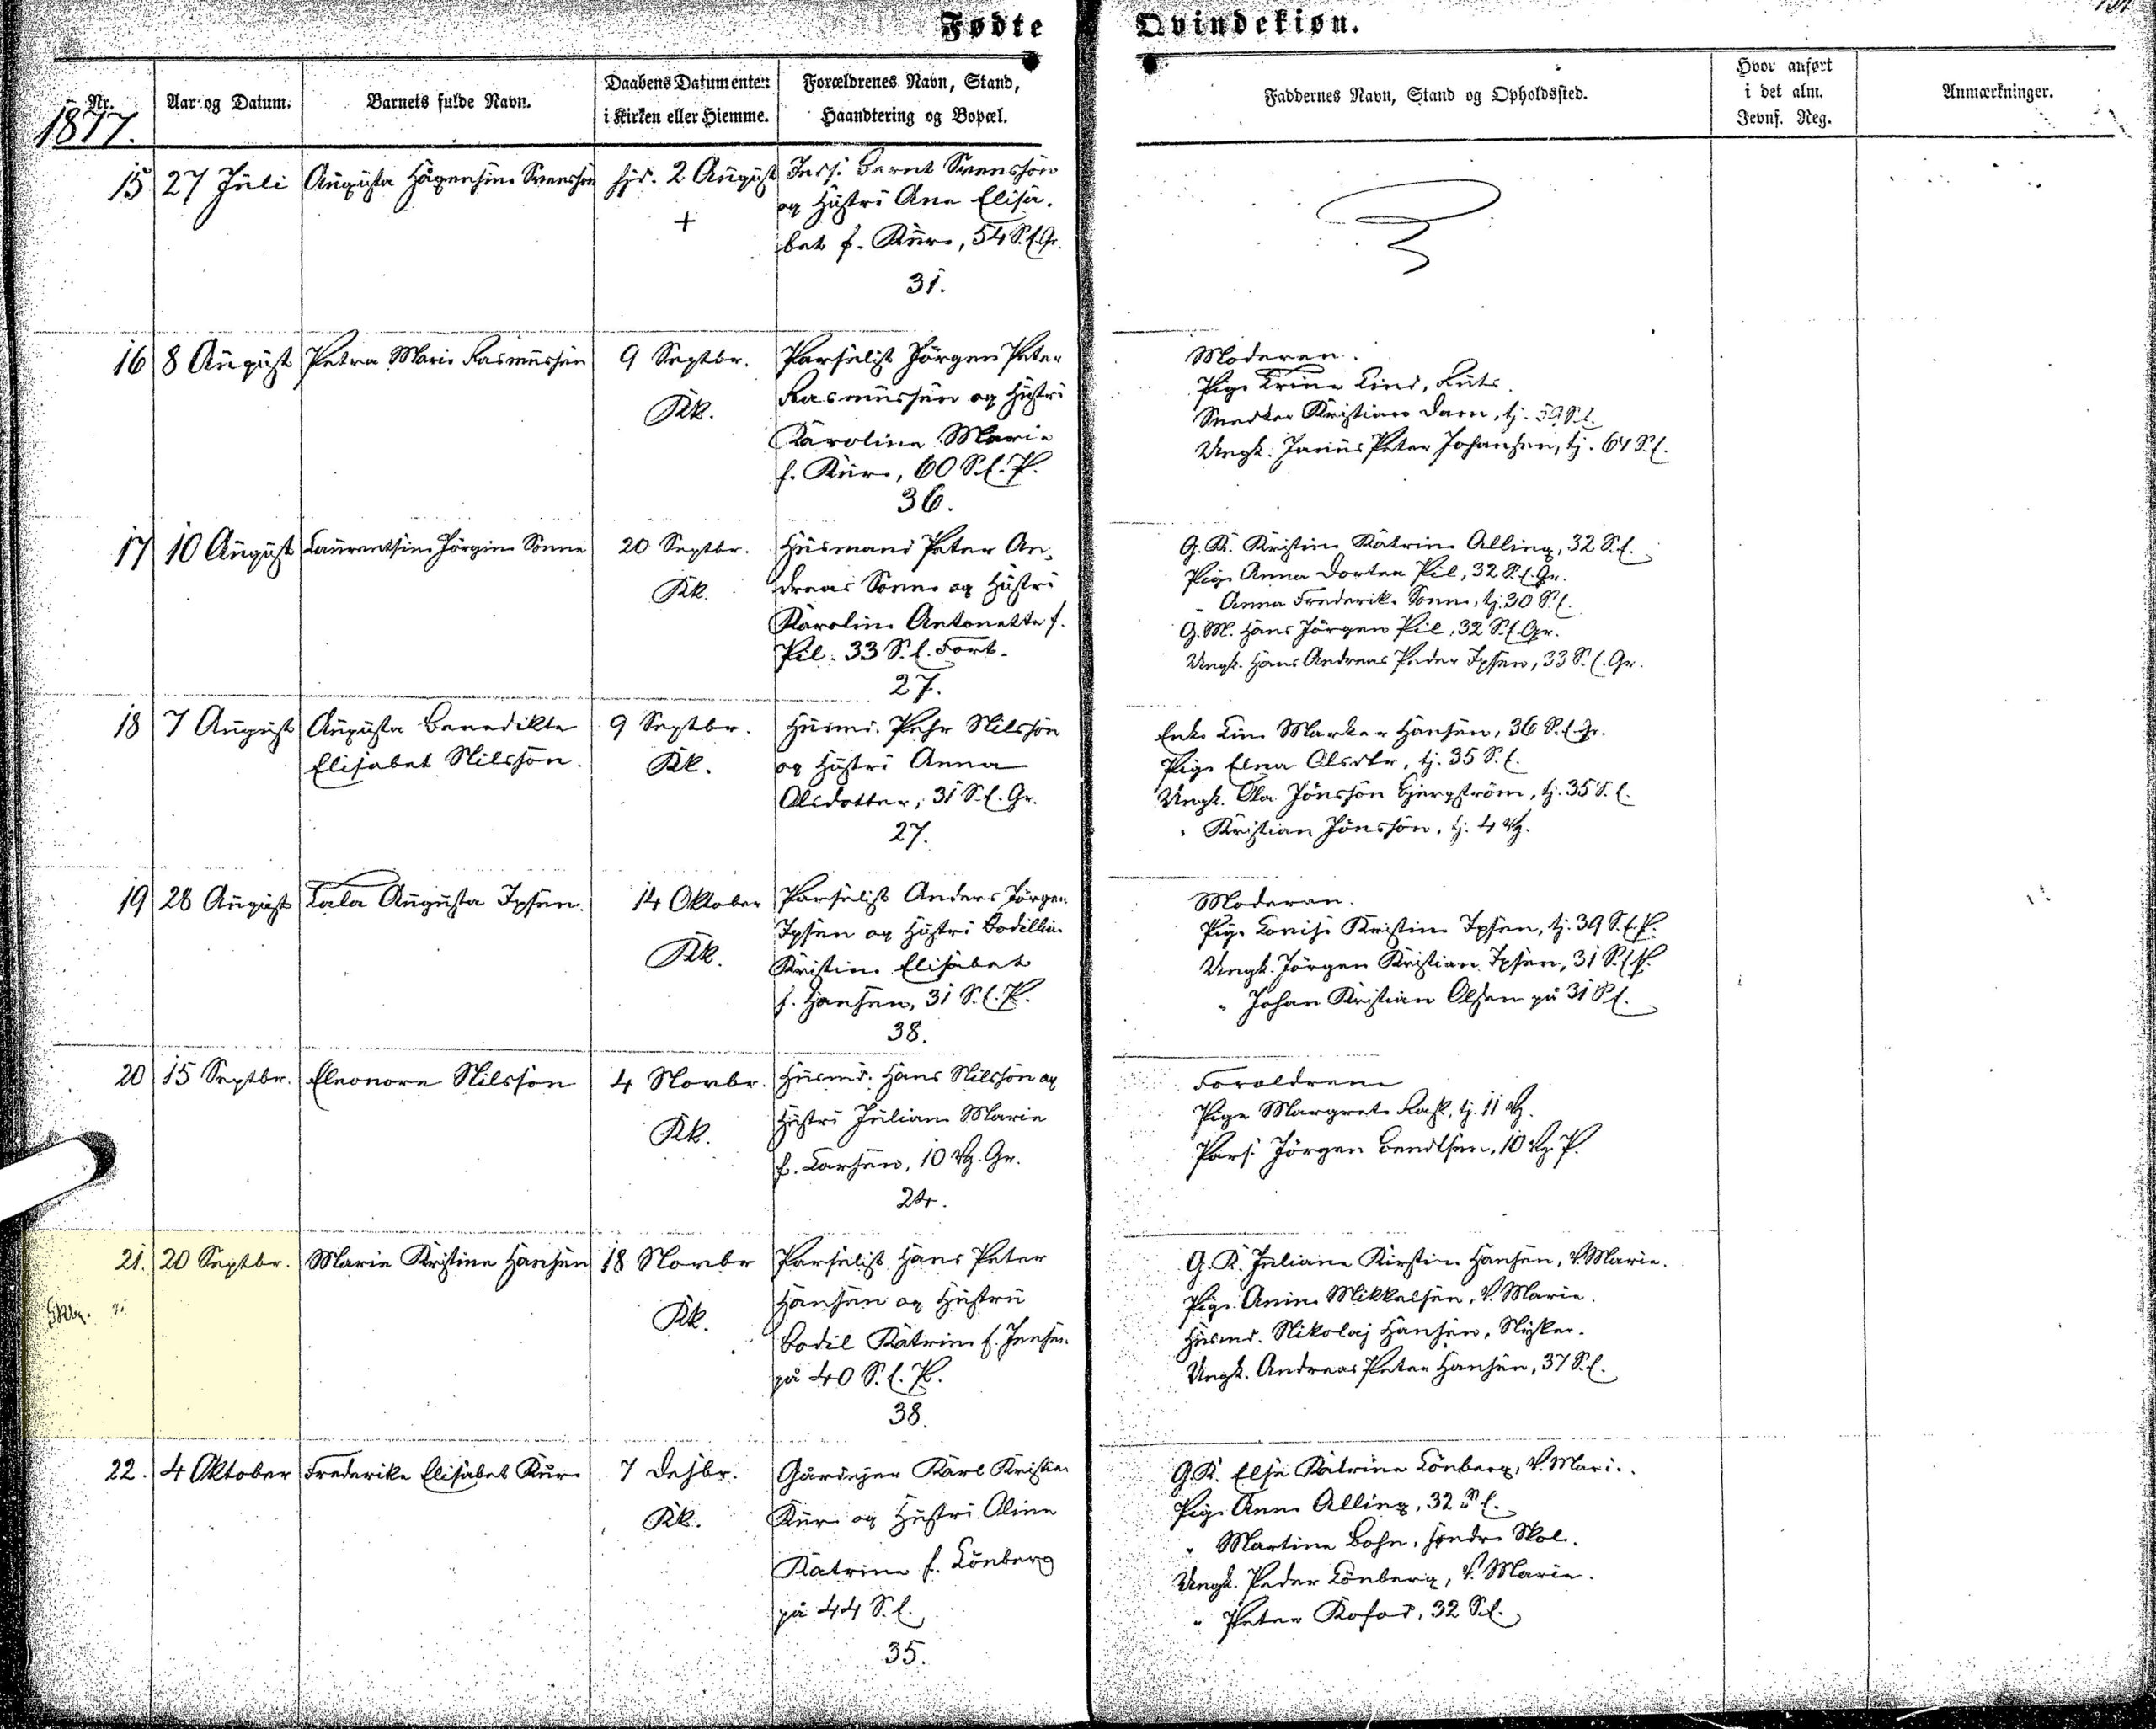 Fødte Qvindekiøn.
Nr. Aar og Datum. Barnets fulde Navn. Daabens Datum enten i Kirken eller Hiemme. Forældrenes Navn, Stand, Haandtering og Bopæl. Faddernes Navn, Stand og Opholdssted. Hvor anført i det alm. Jevnf. Reg. Anmærkninger.
1877.
15 27 Juli Augusta Hågensine Svensson hjd. 2 August
+
Inds. Bernt Svensson
og Hustru Ane Elisa-
bet f. Kure, 54 S.l.Gr.
31.
16 8 August Petra Marie Rasmussen 9 Septbr.
Kk.
Parselist Jörgen Peter
Rasmussen og Hustru
Karoline Marie
f. Kure, 60 S.l.P.
36.
Moderen.
Pige Trine Lind, Ruts.
Snedker Kristian Dam, tj. S.l.
Ungk. Janus Peter Johansen, tj. 61 S.l.
17 10 August Laurentsine Jörgine Sonne 20 Septbr.
Kk.
Husmand Peter An-
dreas Sonne og Hustru
Karoline Antonette f.
Pil. 33 S.l. Fort.
27.
G.K. Kristine Katrine Alling, 32 S.l.
Pige Anna Dortea Pil, 32 S.l.Gr.
" Anna Frederikke Sonne, tj. 30 S.l.
G.M. Hans Jörgen Pil, 32 S.l.Gr.
Ungk. Hans Andreas Peder Ipsen, 33 S.l.Gr.
18 7 August Augusta Benedikte
Elisabet Nilsson.
9 Septbr.
Kk.
Husmd. Pehr Nilsson
og Hustru Anna
Olsdotter, 31 S.l.Gr.
27.
Enke Line Marker Hansen, 36 S.l.Gr.
Pige Elna Olsdtr, tj. 35 S.l.
Ungk. Ola Jönsson Bjergström, tj. 35 S.l.
" Kristian Jönsson, tj. 4 Vg.
19 28 August Lala Augusta Ipsen. 14 Oktober
Kk.
Parselist Anders Jörgen
Ipsen og Hustru Bodilline
Kristine Elisabet
f. Hansen, 31 S.l.P.
38.
Moderen.
Pige Lovise Kristine Ipsen, tj. 39 S.l.P.
Ungk. Jörgen Kristian Ipsen, 31 S.l.P.
" Johan Kristian Olsen på 31 S.l.
20 15 Septbr. Eleonora Nilsson 4 Novbr.
Kk.
Husmd. Hans Nilsson og
Hustru Juliane Marie
f. Larsen, 10 Vg. Gr.
24.
Forældrene
Pige Margrete Rask, tj. 11 Vg.
Pars. Jörgen Bendtsen, 10 Vg. P.
21. 20 Septbr. Marie Kristine Hansen 18 Novbr
Kk.
Parselist Hans Peter
Hansen og Hustru
Bodil Katrine f. Jensen
på 40 S.l.P.
38.
G.K. Juliane Kirstine Hansen, V. Marie.
Pige Anine Mikkelsen, V. Marie.
Husmd. Nikolaj Hansen, Nyker.
Ungk. Andreas Peter Hansen, 37 S.l.
22. 4 Oktober Frederikke Elisabet Kure 7 Desbr.
Kk.
Gårdejer Karl Kristian
Kure og Hustru Oline
Katrine f. Lönberg
på 44 S.l.
35.
G.K. Elsa Katrine Lönberg, V. Marie.
Pige Anne Alling, 32 S.l.
" Martine Bohn, Söndre Skol.
Ungk. Peder Lönberg, V. Marie.
" Peter Kofod, 32 S.l.